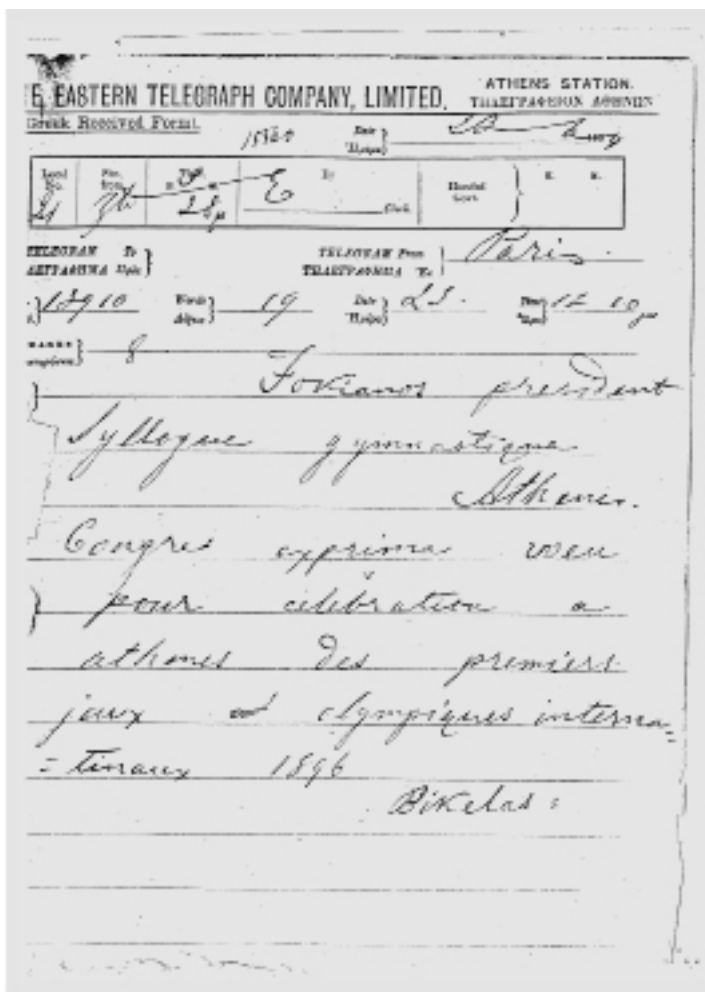 E EASTERN TELEGRAPH COMPANY, LIMITED. ATHENS STATION.
ΤΗΛΕΓΡΑΦΕΙΟΝ ΑΘΗΝΩΝ
Greek Received Form.
Date
Local No. By Clerk
TELEGRAM To TELEGRAM From Paris
ΤΗΛΕΓΡΑΦΗΜΑ
Words 19 Date 23. Time 12 10
8
Fokianos president
Syllogue gymnastique
Athenes.
Congres exprima voeu
pour celebration a
athenes des premiers
jeux olympiques interna=
=tinaux 1896
Bikelas: